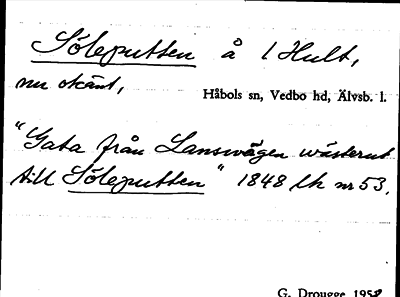 Söleputten å 1 Hult,
nu okänt,
Håbols sn, Vedbo hd, Älvsb. l.
"Gata från Lansvägen wästerut
till Söleputten" 1848 lh nr 53.
G. Drougge 1958